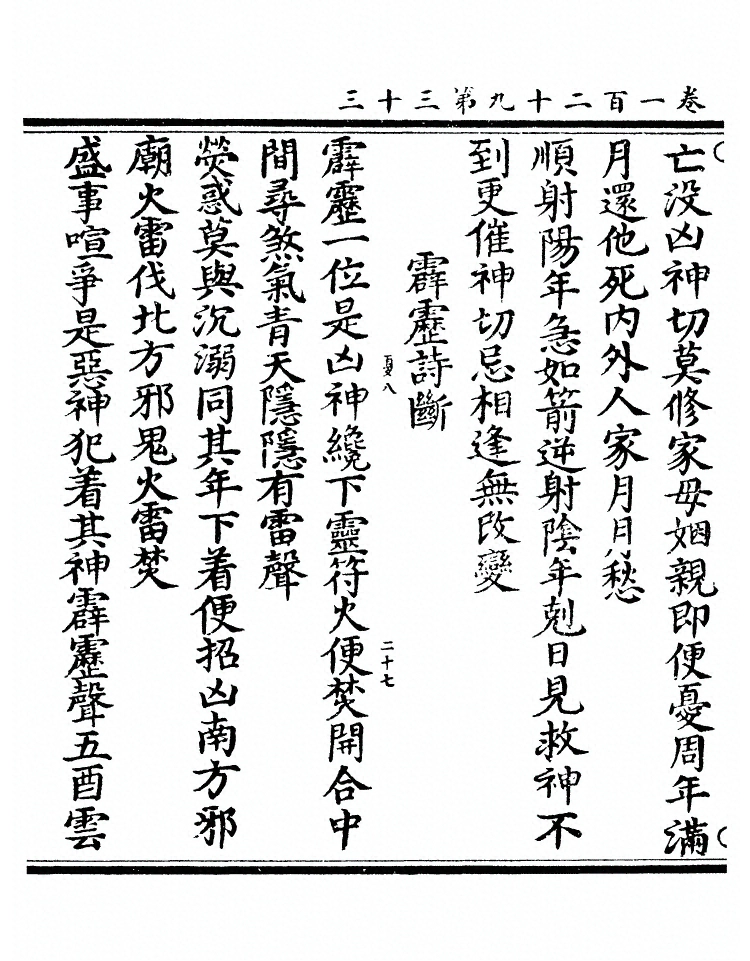 卷一百二十九第三十三
亡没凶神切莫修家母姻親即便憂周年滿
月還他死内外人家月月愁
順射陽年急如箭逆射陰年剋日見救神不
到更催神切忌相逢無改變
霹靂詩斷
夏八
二十七
霹靂一位是凶神纔下靈符火便焚開合中
間尋煞氣青天隱隱有雷聲
熒惑莫與沉溺同其年下着便招凶南方邪
廟火雷伐北方邪鬼火雷焚
盛事喧爭是惡神犯着其神霹靂聲五酉雲